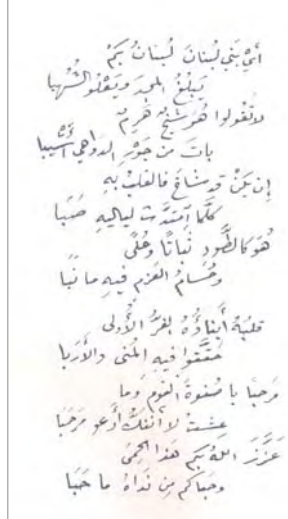 أيْ بَني لُبنانَ لُبنانُ بكُمْ
يَبلُغُ المجدَ ويَعلو الشُّهبا
لا تقولوا هُوَ شيْخٌ هَرِمٌ
باتَ من جَورِ الدواهي أشْيبا
إن يكُنْ قد شاخَ فالقلبُ بهِ
كلَّما آمتدَّت لياليهِ صَبَا
هُوَ كالطَّودِ ثَباتًا وعُلًى
وحُسامُ العزمِ فيهِ ما نَبَا
قلبُهُ أبناؤُهُ الغُرُّ الأُولى
حقَّقوا فيهِ المُنى والأرَبا
مرحبًا يا صَفوةَ القومِ وما
عشتُ لا أنفكُّ أدعو مَرحَبا
عَزَّزَ اللهُ بكُم هَذا الحِمَى
وحَباكُم مِن نَداهُ ما حَبَا